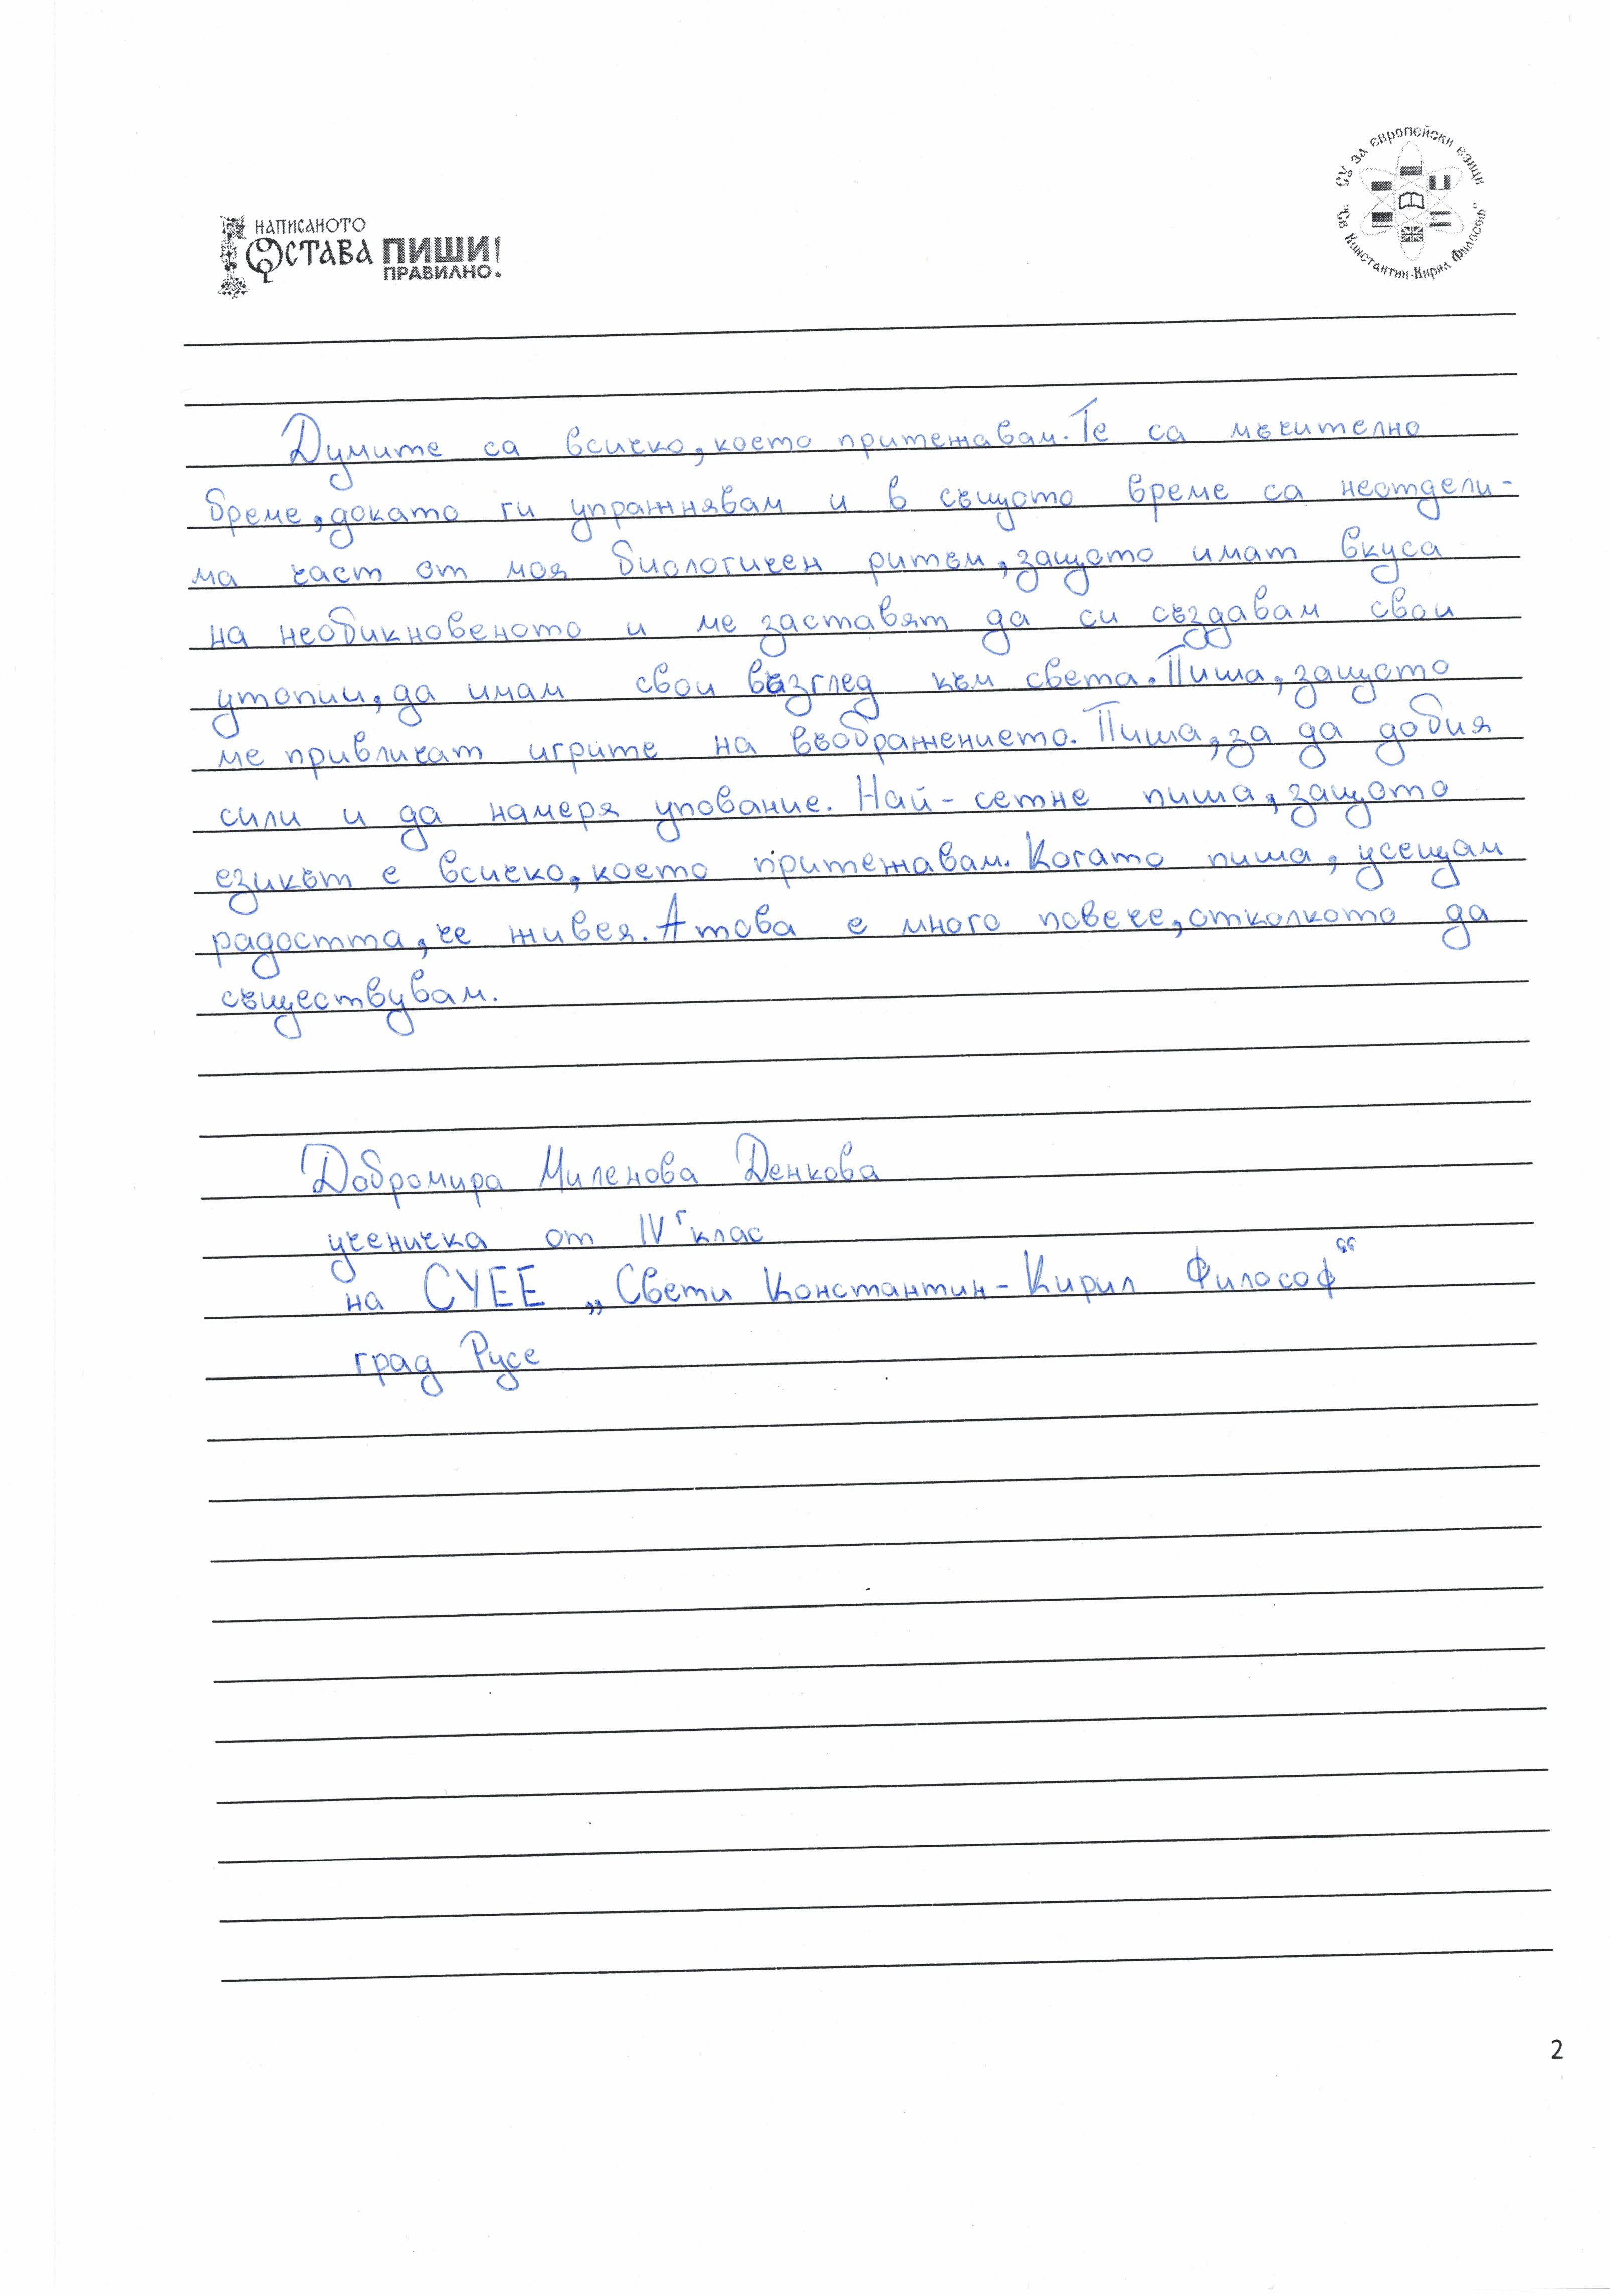 НАПИСАНОТО
ОСТАВА ПИШИ!
ПРАВИЛНО.
СУ за европейски езици
"Св. Константин-Кирил Философ"
Думите са всичко, което притежавам. Те са мъчително
бреме, докато ги упражнявам и в същото време са неотдели-
ма част от моя биологичен ритъм, защото имат вкуса
на необикновеното и ме заставят да си създавам свои
утопии, да имам свои възглед към света. Пиша, защото
ме привличат игрите на въображението. Пиша, за да добия
сили и да намеря упование. Най-сетне пиша, защото
езикът е всичко, което притежавам. Когато пиша, усещам
радостта, че живея. А това е много повече, отколкото да
съществувам.
Добромира Миленова Денкова
ученичка от IV г клас
на СУЕЕ „Свети Константин-Кирил Философ“
град Русе
2